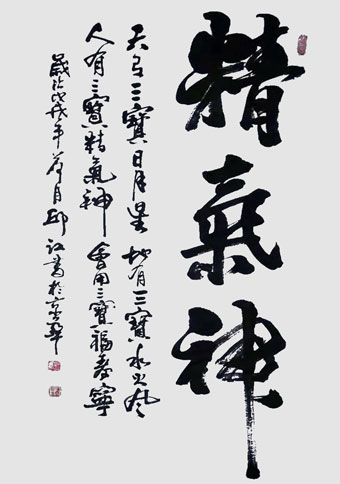 精氣神
天有三寳日月星 地有三寳水火風
人有三寳精氣神 會用三寳福壽寧
歲次戊戌年荷月邱江書於京華